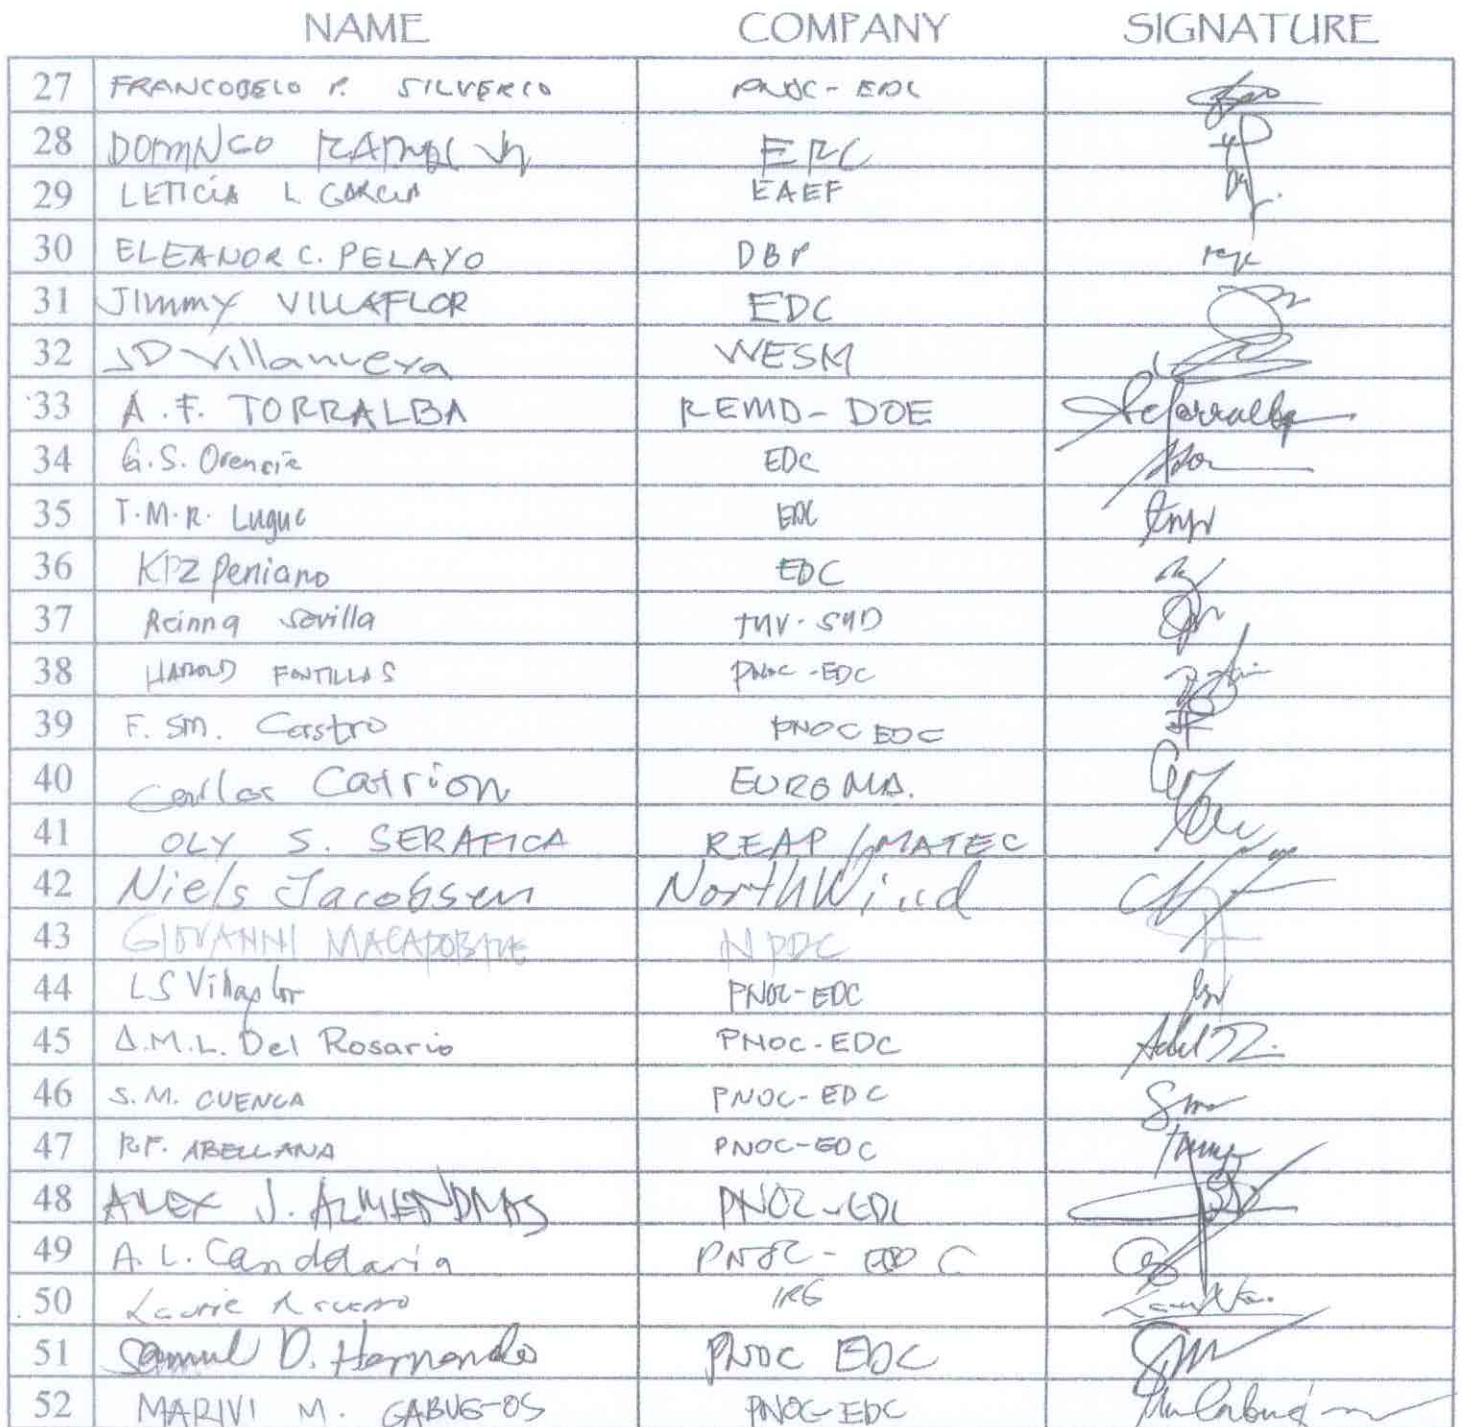 NAME COMPANY SIGNATURE
27 FRANCOBELO P. SILVERIO PNOC-EDC
28 DOMINGO RAMOS Jr ERC
29 LETICIA L GARCIA EAEF
30 ELEANOR C. PELAYO DBP
31 JIMMY VILLAFLOR EDC
32 JD Villanueva WESM
33 A.F. TORRALBA REMD-DOE
34 G.S. Orencia EDC
35 T.M.R. Luguc EDC
36 KPZ Peniano EDC
37 Reinna Sevilla TUV-SUD
38 HAROLD FONTILLAS PNOC-EDC
39 F. SM. Castro PNOC EDC
40 Carlos Catrion EUROMA.
41 OLY S. SERAFICA REAP/MATEC
42 Niels Jacobsen NorthWind
43 GIOVANNI NPDC
44 LS Villaflor PNOC-EDC
45 A.M.L. Del Rosario PNOC-EDC
46 S.M. CUENCA PNOC-EDC
47 R.F. ABELLANA PNOC-EDC
48 ALEX J. ALMENDRAS PNOC-EDC
49 A.L. Candelaria PNOC-EDC
50 Laurie IRG
51 Samuel D. Hernando PNOC EDC
52 MARIVI M. GABUG-OS PNOC-EDC